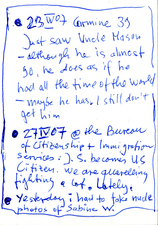 • 23 IV 07 Carmine 39
Just saw Uncle Hason
- although he is almost
90, he does as if he
had all the time of the world
- maybe he has, I still don't
get him
• 27 IV 07 @ the Bureau
of Citizenship + Immigration
Services: J. S. becomes US
Citizen. We are quarreling
fighting a lot lately.
• Yesterday I had to take nude
photos of Sabine W.